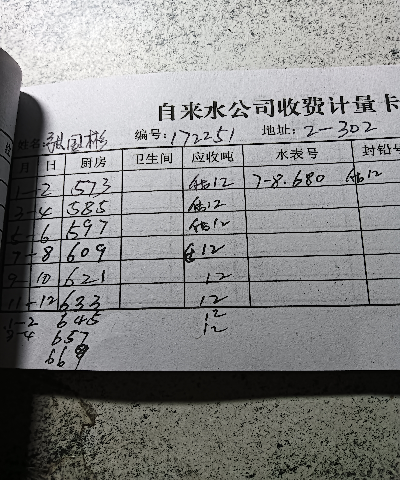 自来水公司收费计量卡
姓名:张国彬 编号:172251 地址:2-302
月 日 厨房 卫生间 应收吨 水表号 封铅号
1-2 573 估12 7-8.680 估12
3-4 585 估12
5-6 597 估12
7-8 609 估12
9-10 621 12
11-12 633 12
1-2 645 12
3-4 657 12
669